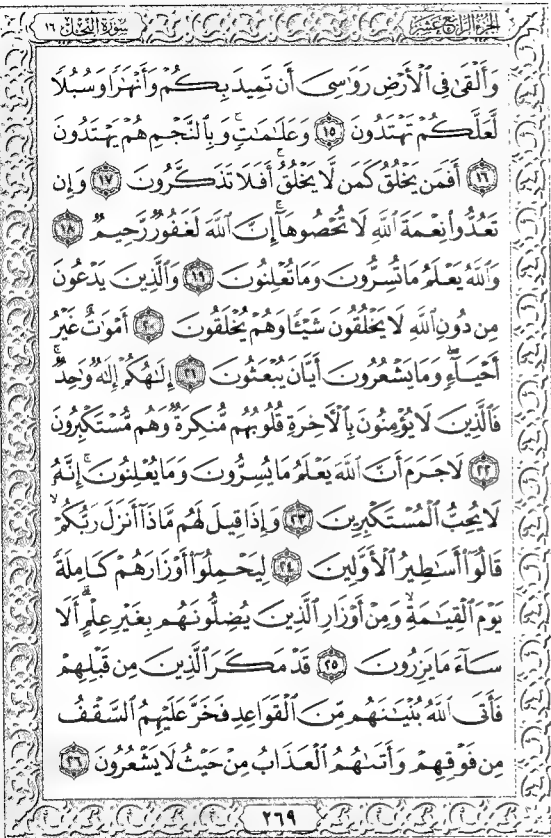 الجزء الرابع عشر
سورة النحل ١٦
وَأَلْقَىٰ فِي ٱلْأَرْضِ رَوَٰسِيَ أَن تَمِيدَ بِكُمْ وَأَنْهَٰرًا وَسُبُلًا
لَّعَلَّكُمْ تَهْتَدُونَ ١٥ وَعَلَٰمَٰتٍ ۚ وَبِٱلنَّجْمِ هُمْ يَهْتَدُونَ
١٦ أَفَمَن يَخْلُقُ كَمَن لَّا يَخْلُقُ ۗ أَفَلَا تَذَكَّرُونَ ١٧ وَإِن
تَعُدُّوا۟ نِعْمَةَ ٱللَّهِ لَا تُحْصُوهَآ ۗ إِنَّ ٱللَّهَ لَغَفُورٌ رَّحِيمٌ ١٨
وَٱللَّهُ يَعْلَمُ مَا تُسِرُّونَ وَمَا تُعْلِنُونَ ١٩ وَٱلَّذِينَ يَدْعُونَ
مِن دُونِ ٱللَّهِ لَا يَخْلُقُونَ شَيْـًٔا وَهُمْ يُخْلَقُونَ ٢٠ أَمْوَٰتٌ غَيْرُ
أَحْيَآءٍ ۖ وَمَا يَشْعُرُونَ أَيَّانَ يُبْعَثُونَ ٢١ إِلَٰهُكُمْ إِلَٰهٌ وَٰحِدٌ ۚ
فَٱلَّذِينَ لَا يُؤْمِنُونَ بِٱلْءَاخِرَةِ قُلُوبُهُم مُّنكِرَةٌ وَهُم مُّسْتَكْبِرُونَ
٢٢ لَا جَرَمَ أَنَّ ٱللَّهَ يَعْلَمُ مَا يُسِرُّونَ وَمَا يُعْلِنُونَ ۚ إِنَّهُۥ
لَا يُحِبُّ ٱلْمُسْتَكْبِرِينَ ٢٣ وَإِذَا قِيلَ لَهُم مَّاذَآ أَنزَلَ رَبُّكُمْ ۙ
قَالُوٓا۟ أَسَٰطِيرُ ٱلْأَوَّلِينَ ٢٤ لِيَحْمِلُوٓا۟ أَوْزَارَهُمْ كَامِلَةً
يَوْمَ ٱلْقِيَٰمَةِ ۙ وَمِنْ أَوْزَارِ ٱلَّذِينَ يُضِلُّونَهُم بِغَيْرِ عِلْمٍ ۗ أَلَا
سَآءَ مَا يَزِرُونَ ٢٥ قَدْ مَكَرَ ٱلَّذِينَ مِن قَبْلِهِمْ
فَأَتَى ٱللَّهُ بُنْيَٰنَهُم مِّنَ ٱلْقَوَاعِدِ فَخَرَّ عَلَيْهِمُ ٱلسَّقْفُ
مِن فَوْقِهِمْ وَأَتَىٰهُمُ ٱلْعَذَابُ مِنْ حَيْثُ لَا يَشْعُرُونَ ٢٦
٢٦٩